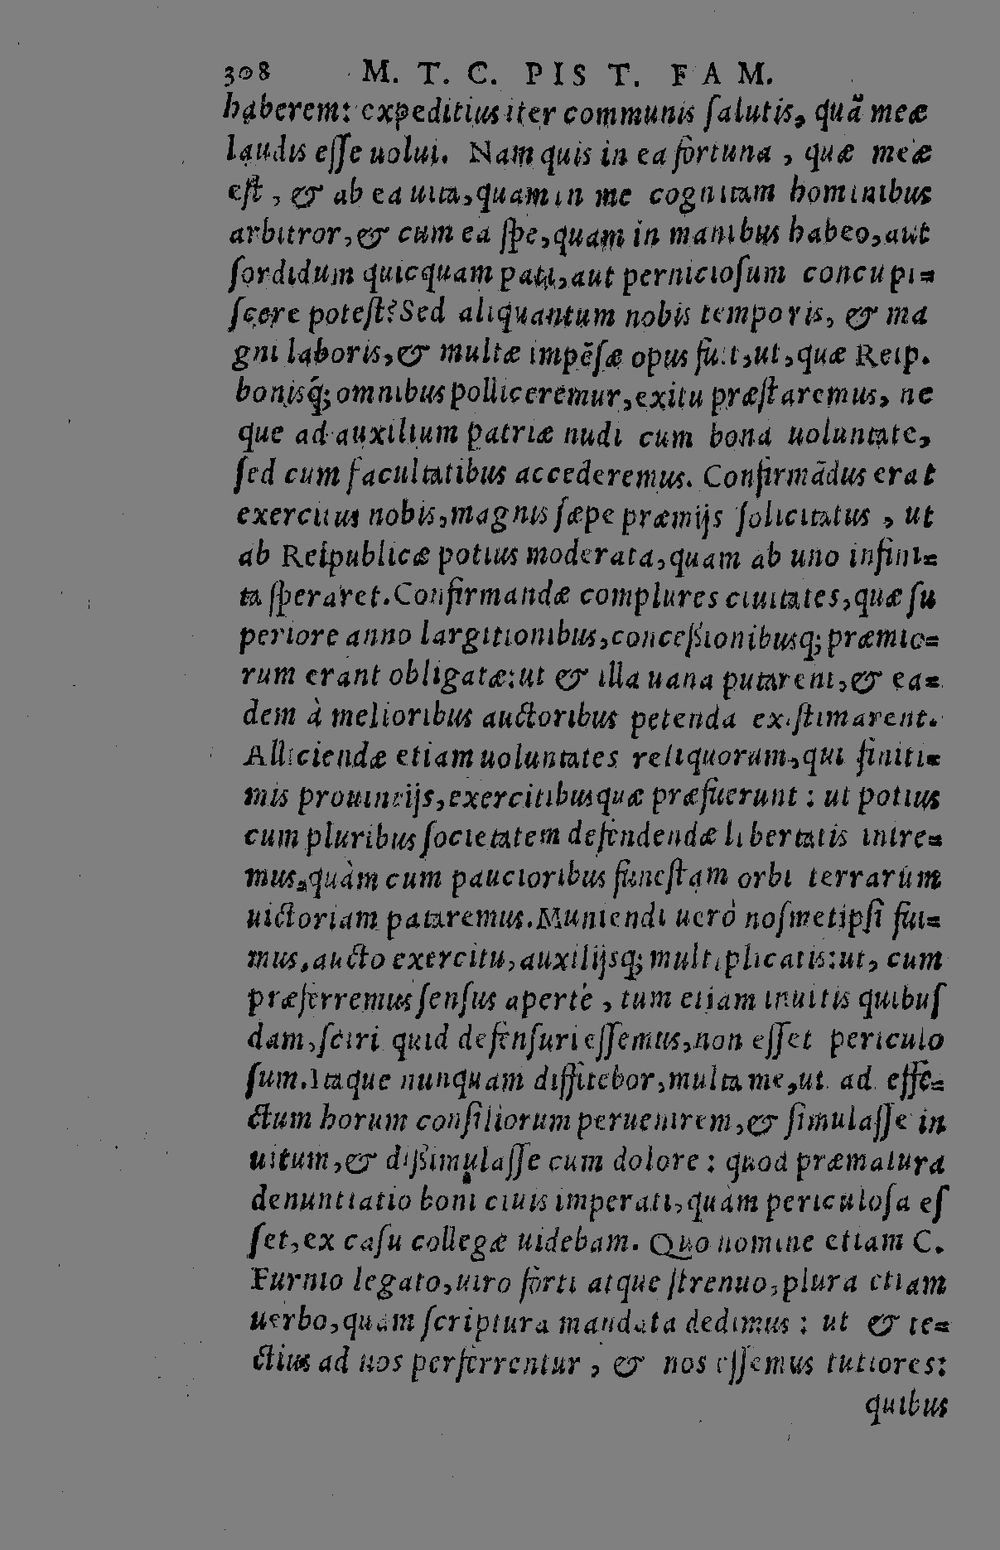 308 M. T. C. PIST. FAM.
haberem: expeditius iter communis ſalutis, quā meæ
laudis eſſe uolui. Nam quis in ea fortuna, quæ mea
eſt, & ab ea uita, quam in me cognitam hominibus
arbitror, & cum ea ſpe, quam in manibus habeo, aut
ſordidum quicquam pati, aut pernicioſum concupi=
ſcere poteſt? Sed aliquantum nobis temporis, & ma
gni laboris, & multæ impēſæ opus fuit, ut, quæ Reip.
bonisq́; omnibus polliceremur, exitu præſtaremus, ne
que ad auxilium patriæ nudi cum bona uoluntate,
ſed cum facultatibus accederemus. Confirmādus erat
exercitus nobis, magnis ſæpe præmijs ſolicitatus, ut
ab Reipublicæ potius moderata, quam ab uno infini=
ta ſperaret. Confirmandæ complures ciuitates, quæ ſu
periore anno largitionibus, conceßionibusq; præmio=
rum erant obligatæ: ut & illa uana putarent, & ea=
dem à melioribus auctoribus petenda exiſtimarent.
Alliciendæ etiam uoluntates reliquorum, qui finiti=
mis prouincijs, exercitibusquæ præfuerunt: ut potius
cum pluribus ſocietatem defendendæ libertatis intre=
mus, quàm cum paucioribus funeſtam orbi terrarum
uictoriam pataremus. Muniendi uerò noſmetipſi fui=
mus, aucto exercitu, auxilijsq; multiplicatis: ut, cum
præferremus ſenſus apertè, tum etiam inuitis quibuſ
dam, ſciri quid defenſuri eſſemus, non eſſet periculo
ſum. Itaque nunquam diffitebor, multa me, ut ad effe=
ctum horum conſiliorum peruenirem, & ſimulaſſe in
uitum, & dißimulaſſe cum dolore: quod præmatura
denuntiatio boni ciuis imperati, quàm periculoſa eſ
ſet, ex caſu collegæ uidebam. Quo nomine etiam C.
Furnio legato, uiro forti atque ſtrenuo, plura etiam
uerbo, quàm ſcriptura mandata dedimus: ut & te=
ctius ad uos perferrentur, & nos eſſemus tutiores:
quibus